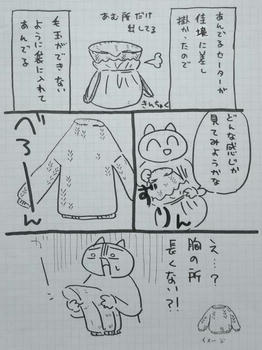 あんでるセーターが
佳境に差し
掛かったので
あむ所だけ
出してる
きんちゃく
毛玉ができない
ように袋に入れて
あんでる
どんな感じか
見てみようかな
ずりん
べろーん
え…?
胸の所
長くない?!
イメージ